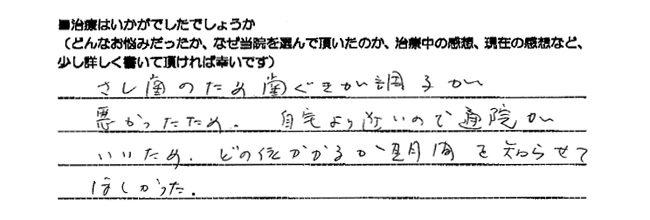 ■治療はいかがでしたでしょうか
（どんなお悩みだったか、なぜ当院を選んで頂いたのか、治療中の感想、現在の感想など、
少し詳しく書いて頂ければ幸いです）
さし歯のため歯ぐきが調るが
悪かったため、自宅より近いので通院が
いいため、どの位かかるか期間を知らせて
ほしかった.